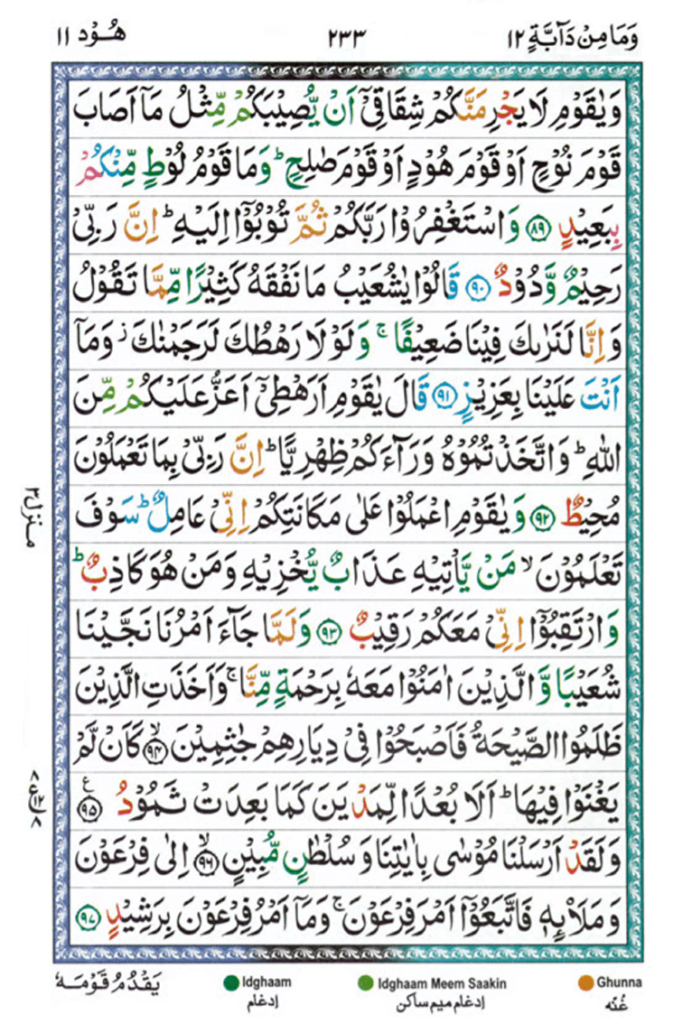 وَمَا مِنْ دَآبَّةٍ ١٢ ٢٣٣ هُوْد ١١
وَيٰقَوْمِ لَا يَجْرِمَنَّكُمْ شِقَاقِيْٓ اَنْ يُّصِيْبَكُمْ مِّثْلُ مَآ اَصَابَ
قَوْمَ نُوْحٍ اَوْ قَوْمَ هُوْدٍ اَوْ قَوْمَ صٰلِحٍ ؕ وَمَا قَوْمُ لُوْطٍ مِّنْكُمْ
بِبَعِيْدٍ ﴿٨٩﴾ وَاسْتَغْفِرُوْا رَبَّكُمْ ثُمَّ تُوْبُوْٓا اِلَيْهِ ؕ اِنَّ رَبِّيْ
رَحِيْمٌ وَّدُوْدٌ ﴿٩٠﴾ قَالُوْا يٰشُعَيْبُ مَا نَفْقَهُ كَثِيْرًا مِّمَّا تَقُوْلُ
وَاِنَّا لَنَرٰىكَ فِيْنَا ضَعِيْفًا ۚ وَلَوْلَا رَهْطُكَ لَرَجَمْنٰكَ ؗ وَمَآ
اَنْتَ عَلَيْنَا بِعَزِيْزٍ ﴿٩١﴾ قَالَ يٰقَوْمِ اَرَهْطِيْٓ اَعَزُّ عَلَيْكُمْ مِّنَ
اللّٰهِ ؕ وَاتَّخَذْتُمُوْهُ وَرَآءَكُمْ ظِهْرِيًّا ؕ اِنَّ رَبِّيْ بِمَا تَعْمَلُوْنَ
مُحِيْطٌ ﴿٩٢﴾ وَيٰقَوْمِ اعْمَلُوْا عَلٰى مَكَانَتِكُمْ اِنِّيْ عَامِلٌ ؕ سَوْفَ
تَعْلَمُوْنَ ۙ مَنْ يَّاْتِيْهِ عَذَابٌ يُّخْزِيْهِ وَمَنْ هُوَ كَاذِبٌ ؕ
وَارْتَقِبُوْٓا اِنِّيْ مَعَكُمْ رَقِيْبٌ ﴿٩٣﴾ وَلَمَّا جَآءَ اَمْرُنَا نَجَّيْنَا
شُعَيْبًا وَّالَّذِيْنَ اٰمَنُوْا مَعَهٗ بِرَحْمَةٍ مِّنَّا ۚ وَاَخَذَتِ الَّذِيْنَ
ظَلَمُوا الصَّيْحَةُ فَاَصْبَحُوْا فِيْ دِيَارِهِمْ جٰثِمِيْنَ ۙ﴿٩٤﴾ كَاَنْ لَّمْ
يَغْنَوْا فِيْهَا ؕ اَلَا بُعْدًا لِّمَدْيَنَ كَمَا بَعِدَتْ ثَمُوْدُ ﴿٩٥﴾ ع
وَلَقَدْ اَرْسَلْنَا مُوْسٰى بِاٰيٰتِنَا وَسُلْطٰنٍ مُّبِيْنٍ ۙ﴿٩٦﴾ اِلٰى فِرْعَوْنَ
وَمَلَا۟ئِهٖ فَاتَّبَعُوْٓا اَمْرَ فِرْعَوْنَ ۚ وَمَآ اَمْرُ فِرْعَوْنَ بِرَشِيْدٍ ﴿٩٧﴾
منزل ٣
يَقْدُمُ قَوْمَهٗ
Idghaam
Idghaam Meem Saakin
Ghunna
إدغام
إدغام ميم ساكن
غُنّه